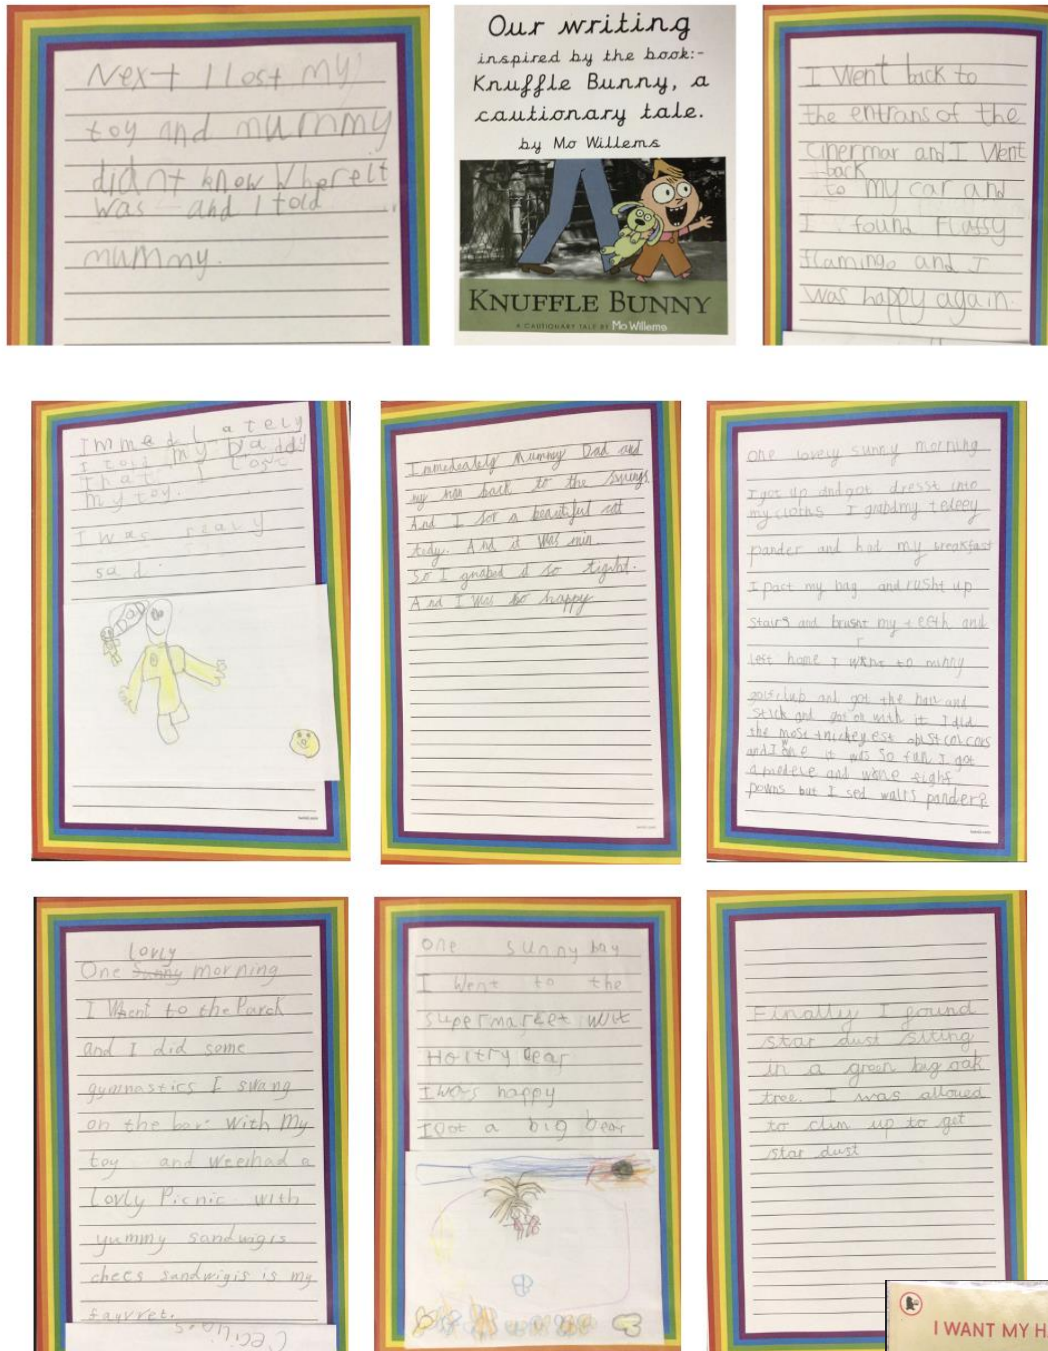 Next I lost my
toy and mummy
didnt know whereit
was and I told
mummy.
Our writing
inspired by the book:-
Knuffle Bunny, a
cautionary tale.
by Mo Willems
KNUFFLE BUNNY
A CAUTIONARY TALE BY Mo Willems
I Went back to
the entrans of the
cinermar and I Went
back
to my car and
I found Flassy
flamingo and I
was happy again.
Immediately
I told my Daddy
That I lost
my toy.
I was realy
sad.
Immedeately Mummy Dad and
my nan back to the swings.
And I sor a beautiful cat
tedy. And it was min.
So I grabed it so tight.
And I was so happy
one lovely sunny morning
I got up and got dresst into
my cloths I grabd my teleey
pander and hat my breakfast
I pact my bag and rusht up
stairs and brusht my teeth and
left home I went to minny
golf club and got the ball and
stick and got on with it I did
the most trickeyest
and I it was so fun I got
a medele and wone eight
powns but I sed walls pander?
lovly
One Sunny morning
I Whent to the Parck
and I did some
gymnastics I swang
on the bar With My
toy and weehad a
Lovly Picnic with
yummy sandwigis
chees sandwigis is my
fayvret.
one sunny bay
I went to the
supermarket wit
bear
I was happy
I got a big bear
Finally I found
star dust siting
in a green big oak
tree. I was allowed
to clim up to get
star dust
I WANT MY H